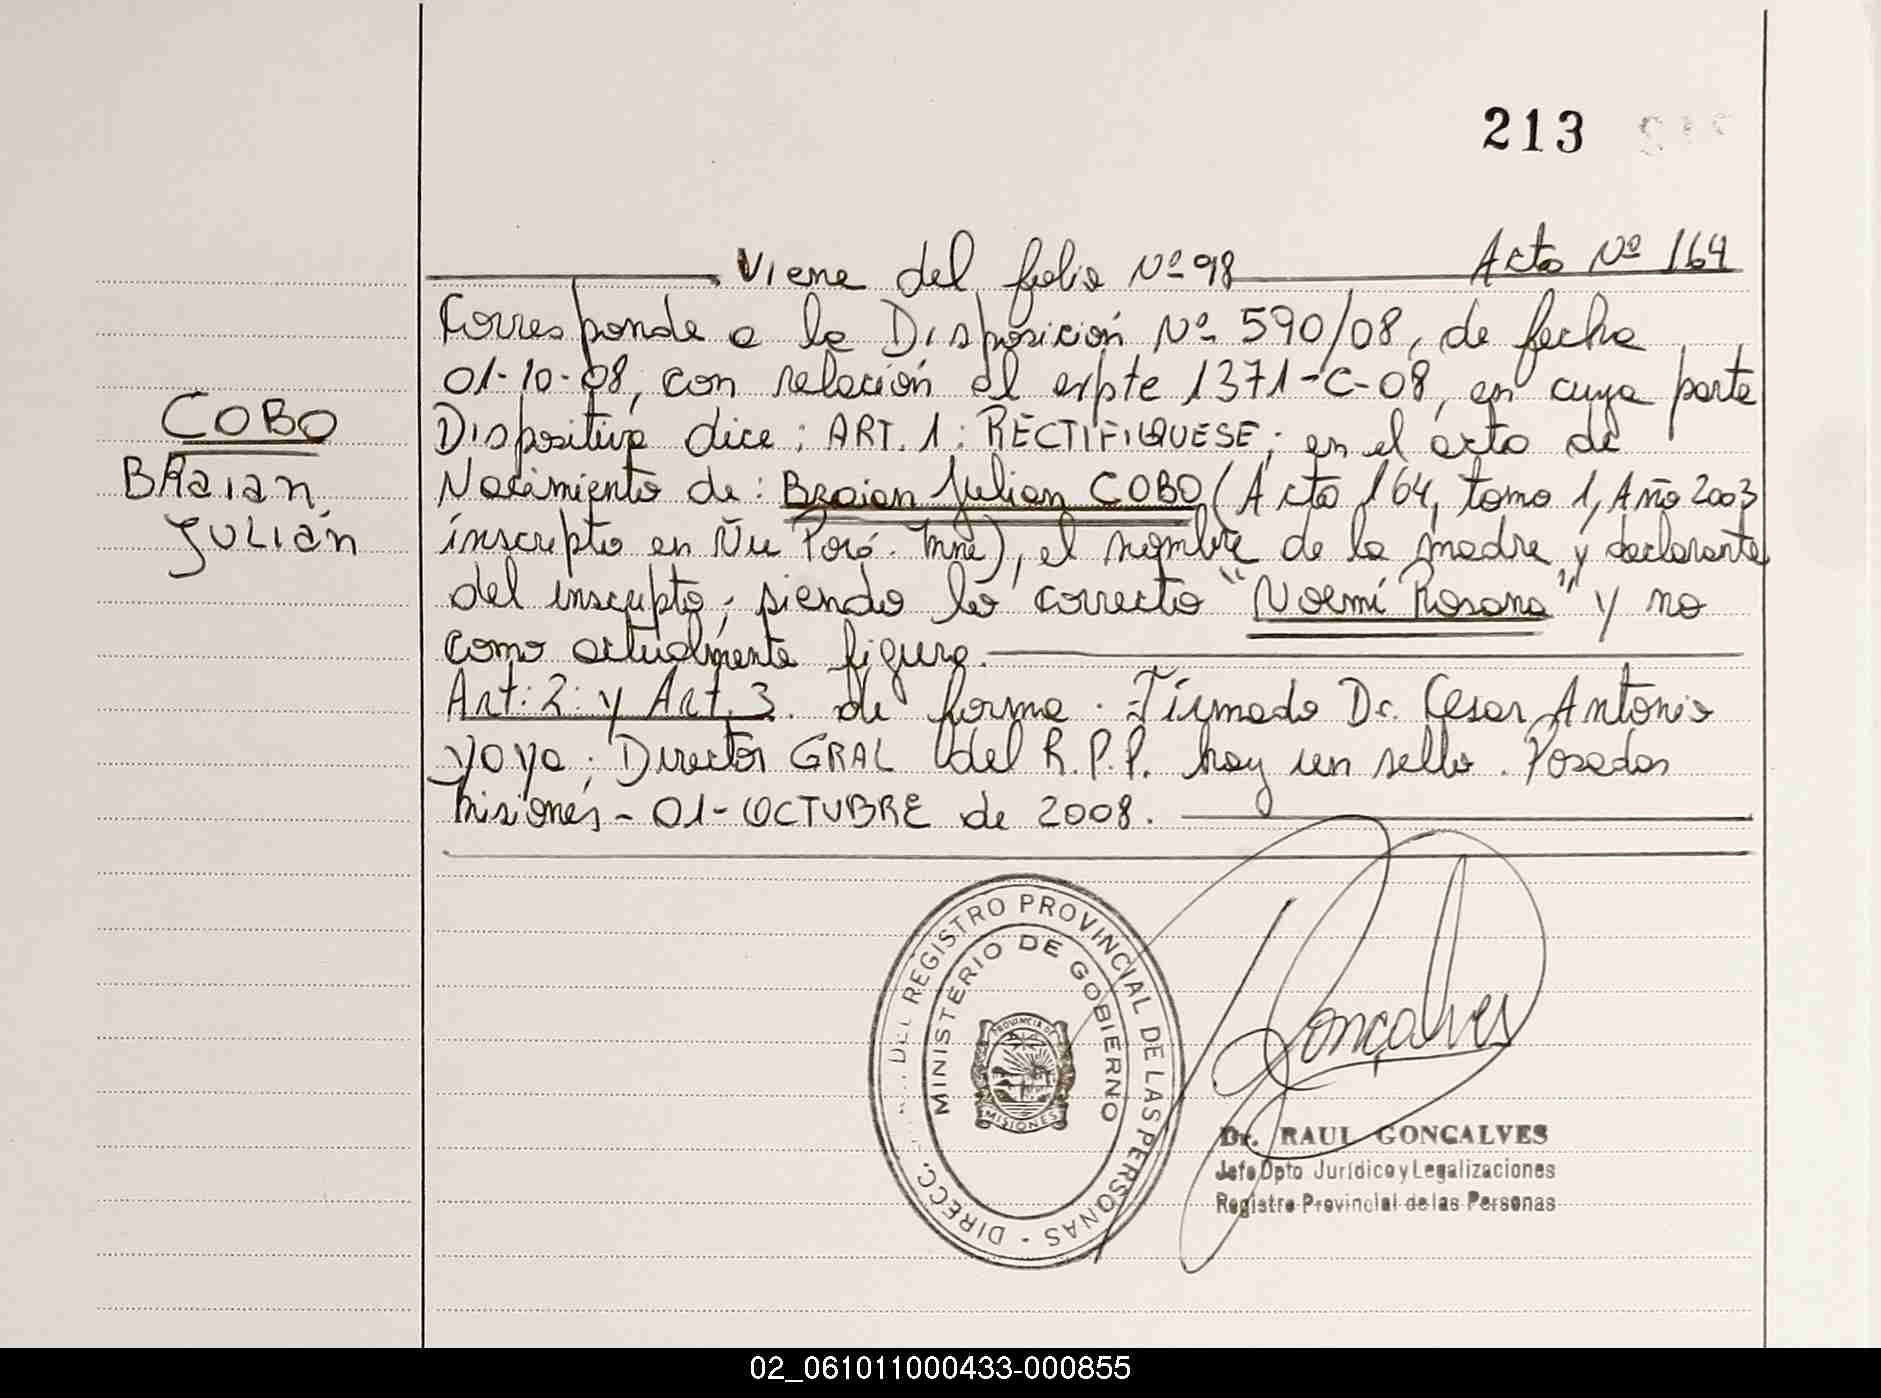 213
Viene del folio Nº 98 Acta Nº 164
Corresponde a la Disposición Nº 590/08, de fecha
01-10-08, con relación al expte 1371-C-08, en cuya parte
Dispositiva dice: ART. 1: RECTIFIQUESE; en el acta de
COBO
BRaian
JULIán
Nacimiento de: Braian Julian COBO (Acta 164, tomo 1, Año 2003
inscripto en Ñu Porá. Mnes), el nombre de la madre y declarante
del inscripto; siendo lo correcto "Noemí Rosana" y no
como actualmente figura.
Art: 2: y Art. 3. de forma. Firmado Dr. Cesar Antonio
Yaya; Director GRAL del R.P.P. hay un sello. Posadas
Misiones - 01-OCTUBRE de 2008.
DIRECC. DEL REGISTRO PROVINCIAL DE LAS PERSONAS -
MINISTERIO DE GOBIERNO
PROVINCIA DE
MISIONES
Gonçalves
Dr. RAUL GONÇALVES
Jefe Dpto Jurídico y Legalizaciones
Registro Provincial de las Personas
02_061011000433-000855